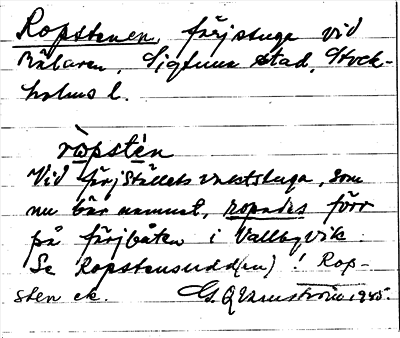 Ropstenen, färjstuga vid
Mälaren, Sigtuna stad, Stock-
holms l.
ròpstén
Vid färjställets vaktstuga, som
nu bär namnet, ropades förr
på färjbåten i Vallbyvik.
Se Ropstensudd(en)! Rop-
sten ek. G. Q 1945.